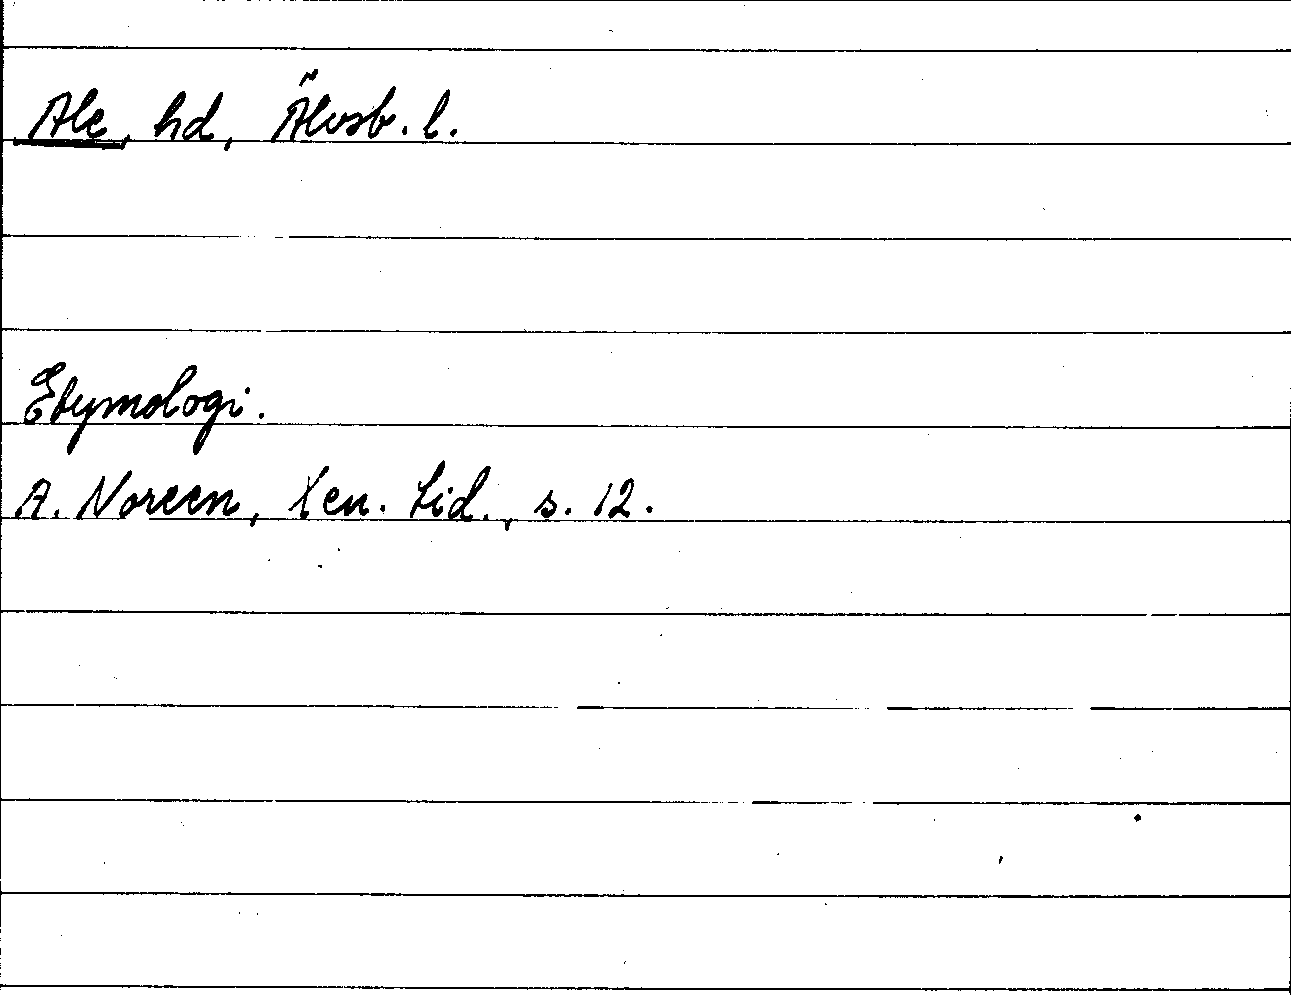 Ale, hd, Älvsb. l.
Etymologi.
A. Noreen, Xen. Lid., s. 12.